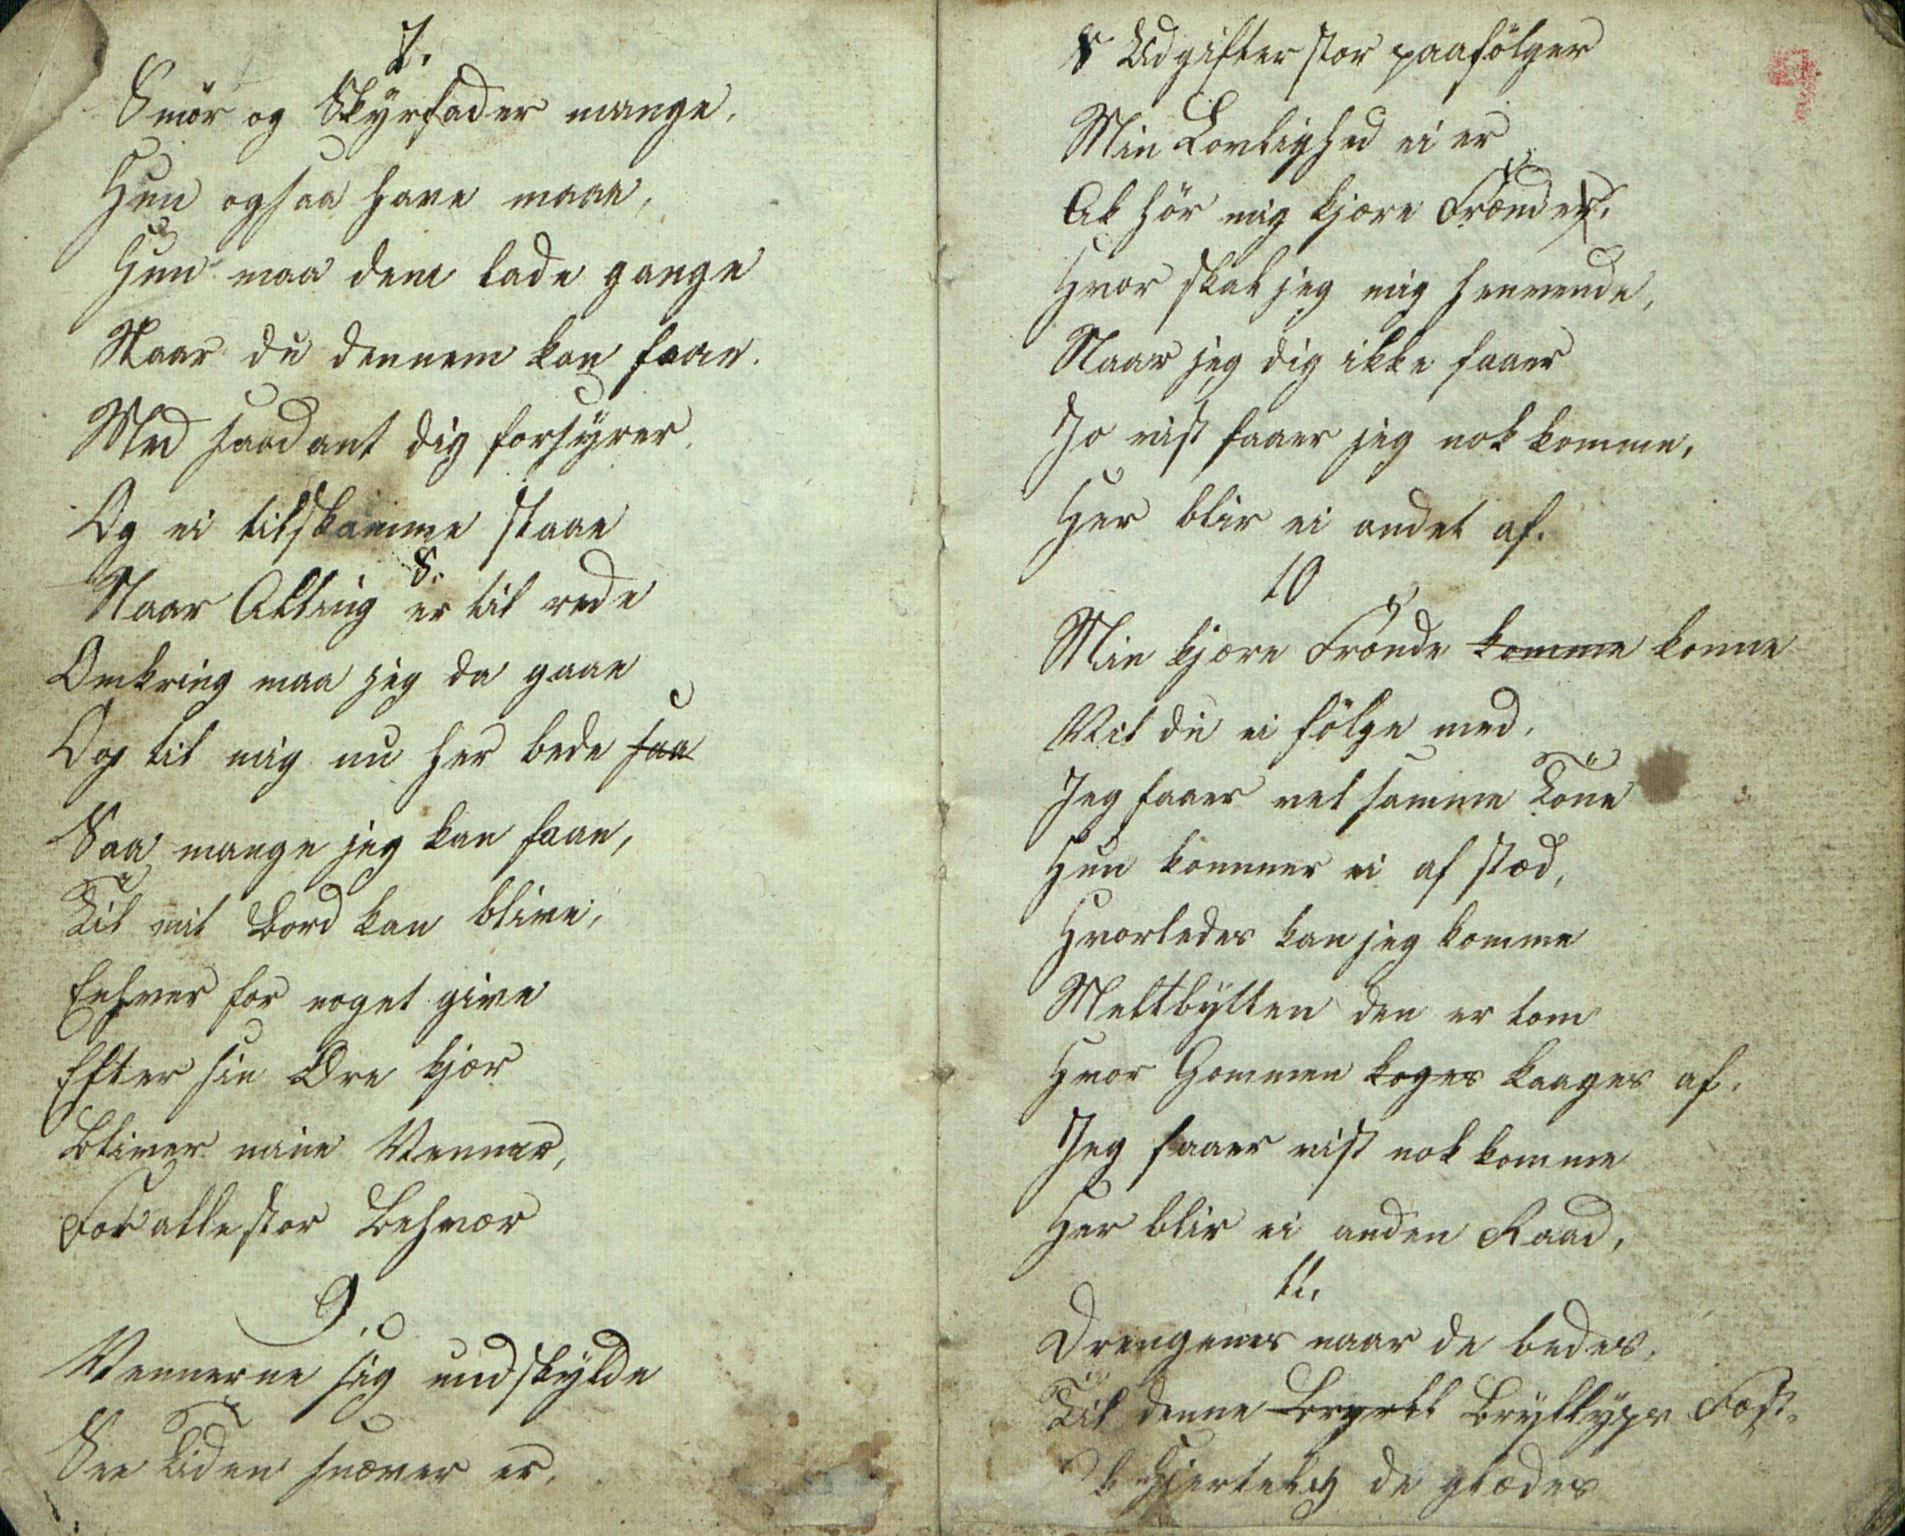 7.
Smör og Skÿrfader mange,
Hun ogsaa have maae,
Hun maa dem lade gange
Naar du dennem kan faae.
Med saadant dig forsÿner
Og ei tilskamme staae
8.
Naar Alting er til rede
Omkring maa jeg da gaae
Og til mig nu her bede saa
Saa mange jeg kan faae,
Til mit Bord kan blive,
Enhver for noget give
Efter sin Ære kjær
Bliver mine Venner,
For alle stor Besvær
9.
Vennerne sig undskÿlde
See Tiden snæver er,
Udgifter stor paafölger
Min Lovlighed ei er
Ak hör mig kjære Frænder,
Hvor skal jeg mig henvende,
Naar jeg dig ikke faaer
Jo vist faaer jeg nok komme,
Her blir ei andet af.
10
Min kjære Frænde komme konne
Vil du ei fölge med,
Jeg faaer vel samme Töne
Hun kommer ei af stæd,
Hvorledes kan jeg komme
Meltbÿtten den er tom
Hvor Gommen koges kaages af,
Jeg faaer vist nok komme
Her blir ei anden Raad,
11.
Drengenes naar de bedes,
Til denne Brÿllÿps Fæst,
Hjertelig de glædes